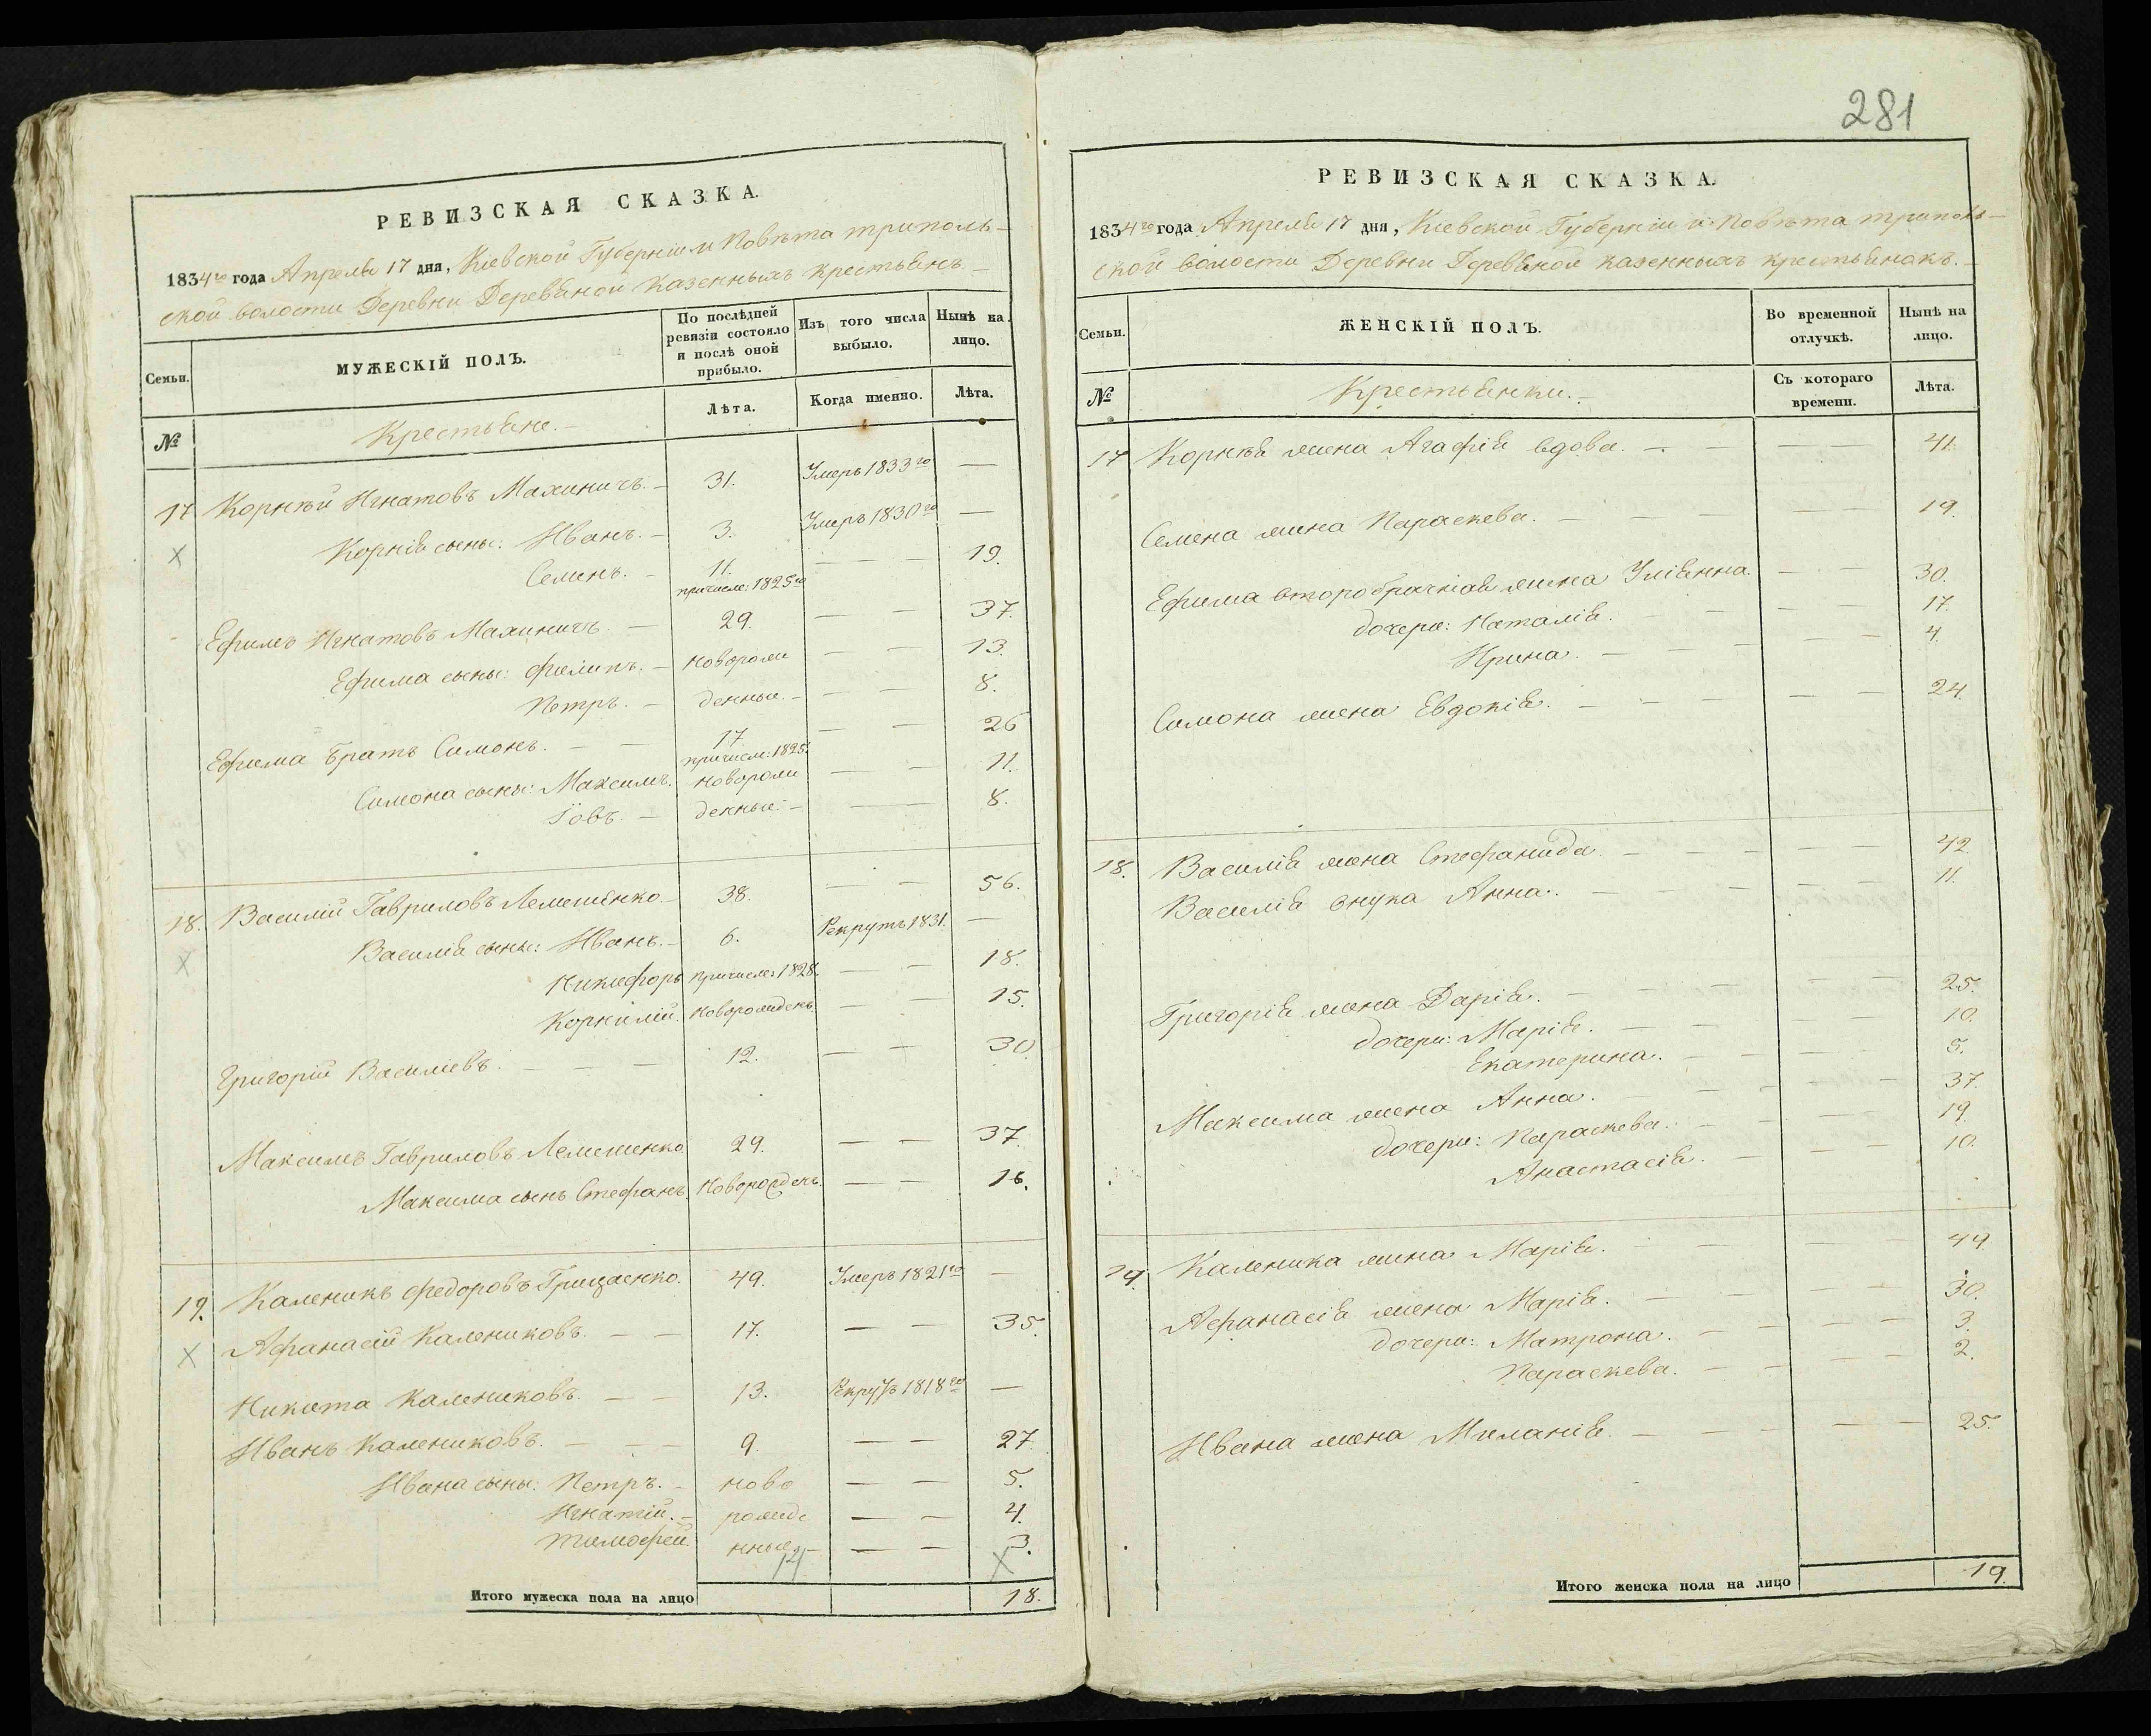 РЕВИЗСКАЯ СКАЗКА.
1834го года Апреля 17 дня, Киевской Губерніи и Повѣта триполь-
ской волости Деревни Деревяной Казенныхъ крестьянъ.
Семьи. МУЖЕСКІЙ ПОЛЪ. По послѣдней ревизіи состояло и послѣ оной прибыло. Изъ того числа выбыло. Нынѣ на лицо.
№ Крестьяне. Лѣта. Когда именно. Лѣта.
17 Корнѣй Игнатовъ Махиничъ. 31. Умеръ 1833го —
Корнія сыны: Иванъ. 3. Умеръ 1830го —
Семенъ. 11. причисле: 1825го — 19.
Ефимъ Игнатовъ Махиничъ. 29. — 37.
Ефима сыны: Филипъ. новорож — 13.
Петръ. денные. — 8.
Ефима братъ Симонъ. 17. причисле: 1825. — 26
Симона сыны: Максимъ. новорож — 11.
Іовъ. денные. — 8.
18. Василій Гавриловъ Лемешенко. 38. — 56.
Василія сыны: Иванъ. 6. Рекрутъ 1831. —
Никифоръ причисле: 1828. — 18.
Корнилій. Новорожденъ — 15.
Григорій Василіевъ. 12. — 30.
Максимъ Гавриловъ Лемешенко 29. — 37.
Максима сынъ Стефанъ. Новорожденъ. — 16.
19. Каленикъ Федоровъ Грицаенко. 49. Умеръ 1821го —
Афанасій Калениковъ. 17. — 35.
Никита Калениковъ. 13. Рекрутъ 1818го —
Иванъ Калениковъ. 9. — 27.
Ивана сыны: Петръ. ново — 5.
Игнатій. рожде — 4.
Тимофей. нные — 3.
14
Итого мужеска пола на лицо 18.
281
РЕВИЗСКАЯ СКАЗКА.
1834го года Апреля 17 дня, Киевской Губерніи и Повѣта триполь-
ской волости Деревни Деревяной казенныхъ крестьянокъ.
Семьи. ЖЕНСКІЙ ПОЛЪ. Во временной отлучкѣ. Нынѣ на лицо.
№ Крестьянки. Съ котораго времени. Лѣта.
17 Корнѣя жена Агафія вдова. — 41.
Семена жена Параскева. — 19.
Ефима второбрачная жена Уліянна. — 30.
дочери: Наталія. — 17.
Ирина. — 4.
Симона жена Евдокія. — 24.
18. Василія жена Стефанида. — 42.
Василія внука Анна. — 11.
Григорія жена Дарія. — 25.
дочери: Марія. — 10.
Екатерина. — 5.
Максима жена Анна. — 37.
дочери: Параскева. — 19.
Анастасія. — 10.
19. Каленика жена Марія. — 49.
Афанасія жена Марія. — 30.
дочери: Матрона. — 3.
Параскева. — 2.
Ивана жена Миланія. — 25.
Итого женска пола на лицо 19.